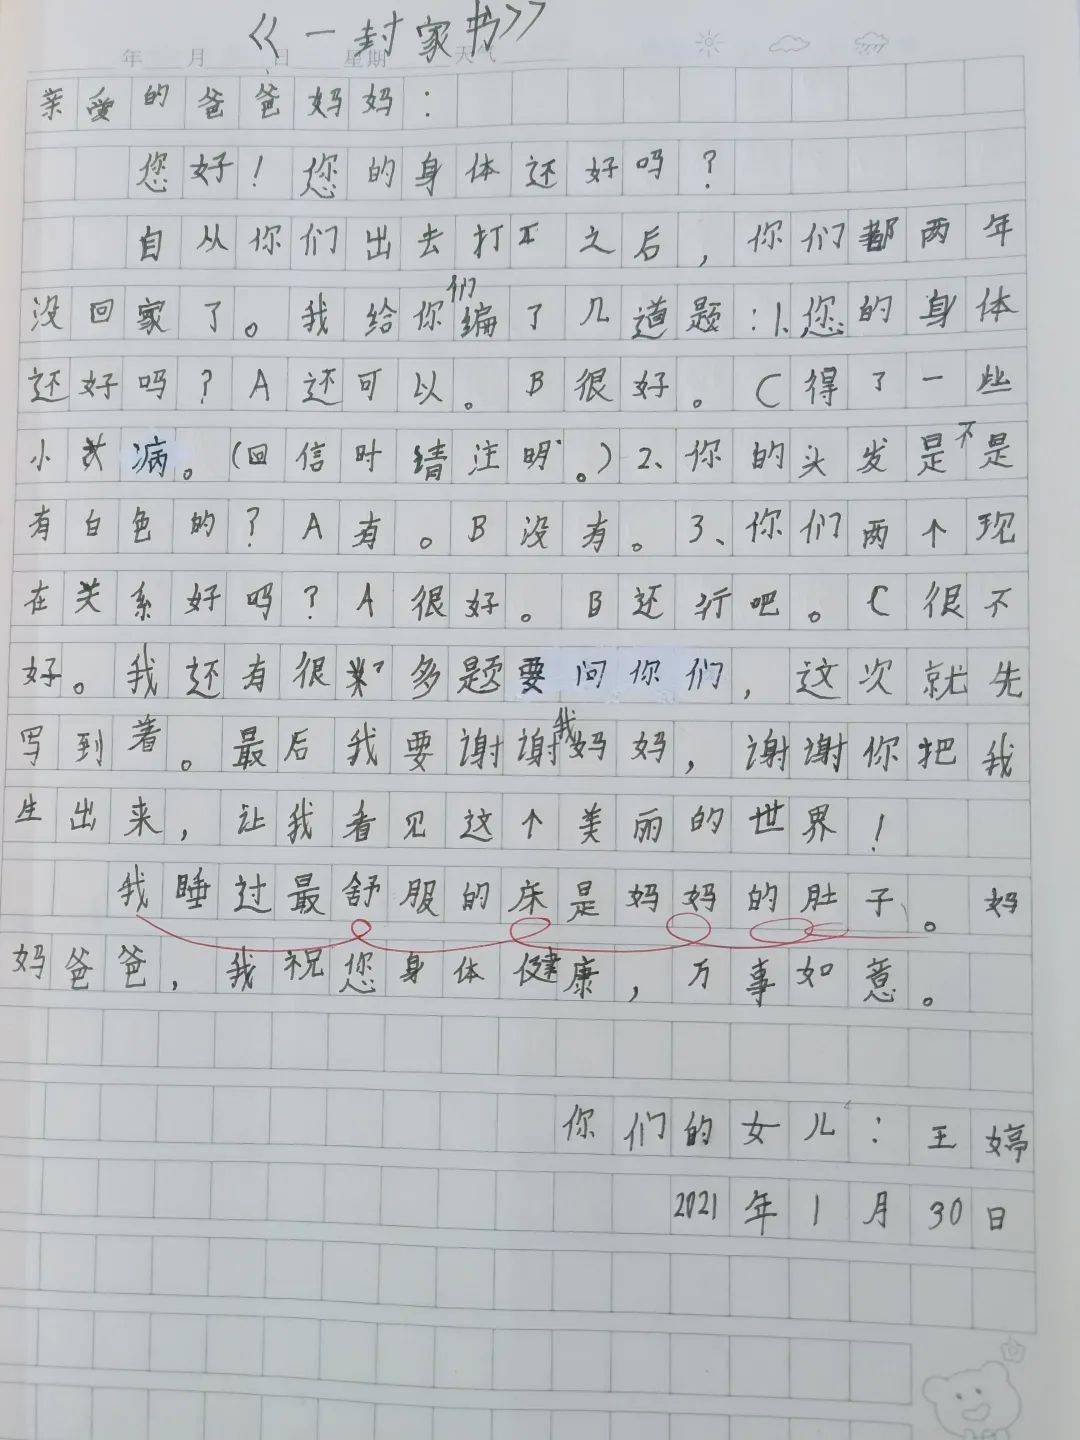 《一封家书》
年 月 日 星期 天气
亲爱的爸爸妈妈：
您好！您的身体还好吗？
自从你们出去打工之后，你们都两年
没回家了。我给你们编了几道题：1、您的身体
还好吗？A还可以。B很好。C得了一些
小病。（回信时请注明。）2、你的头发是不是
有白色的？A有。B没有。3、你们两个现
在关系好吗？A很好。B还行吧。C很不
好。我还有很多题要问你们，这次就先
写到着。最后我要谢谢我妈妈，谢谢你把我
生出来，让我看见这个美丽的世界！
我睡过最舒服的床是妈妈的肚子。妈
妈爸爸，我祝您身体健康，万事如意。
你们的女儿：王婷
2021年1月30日